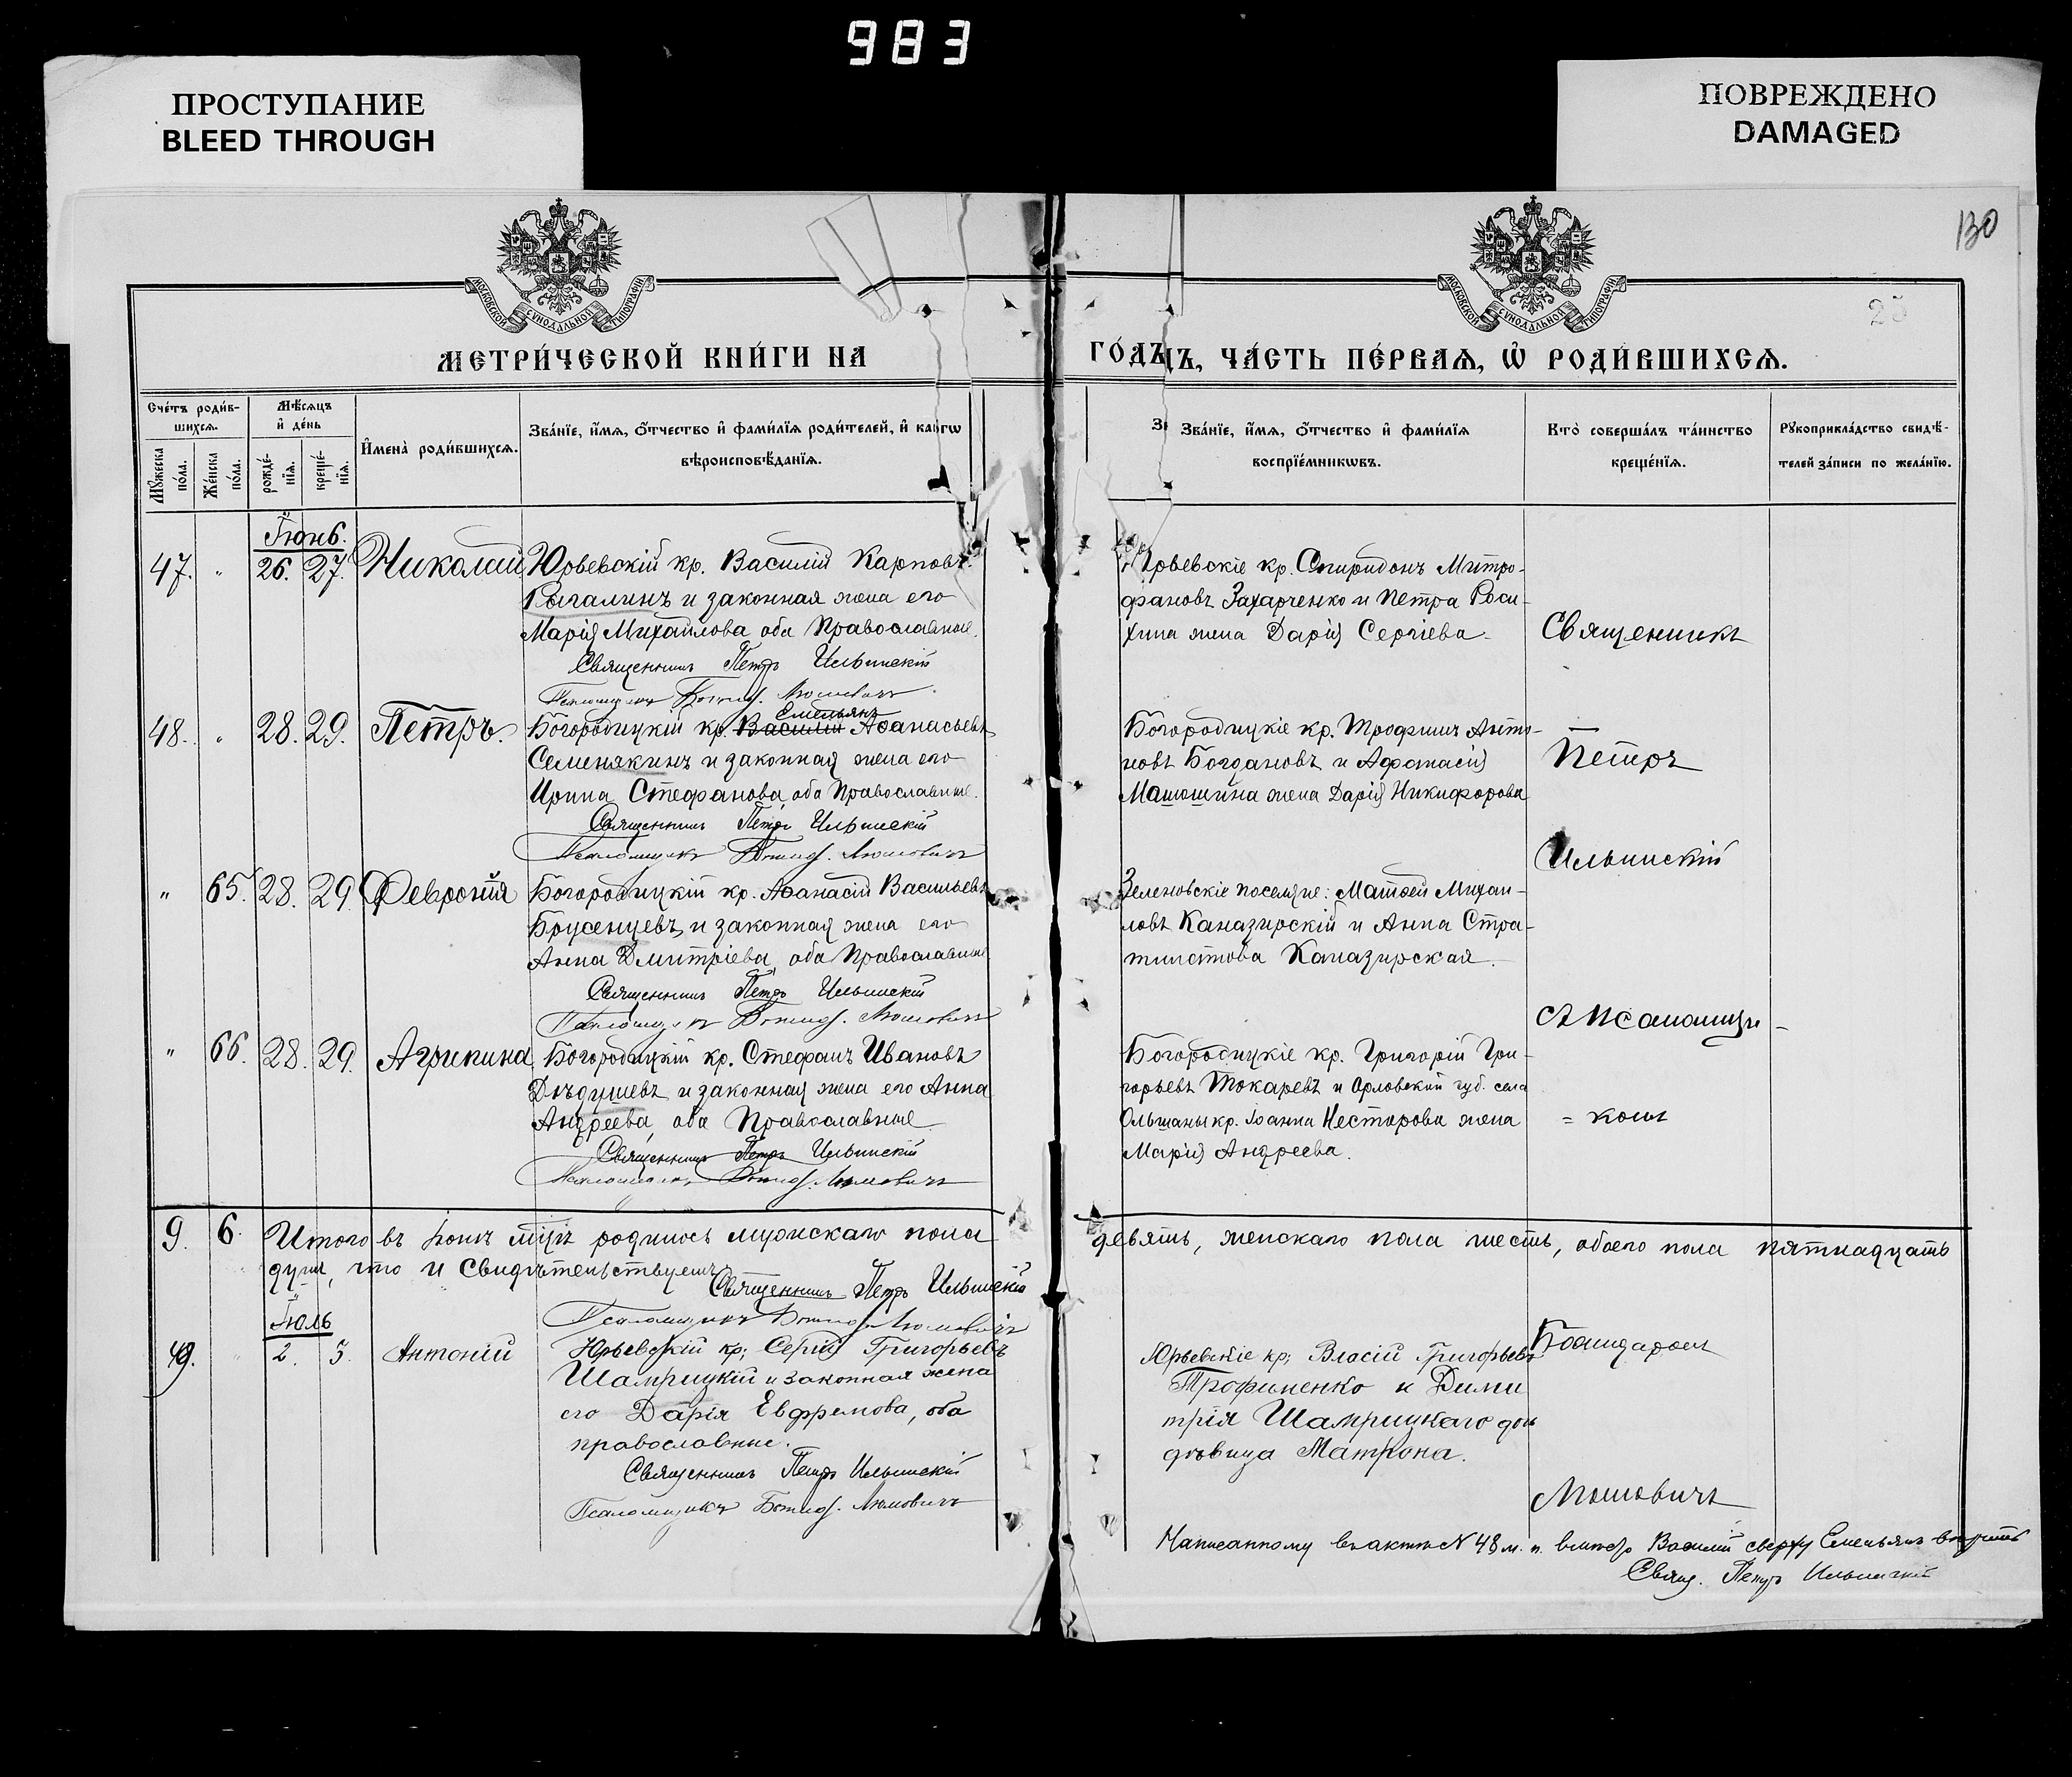 983
ПРОСТУПАНИЕ
BLEED THROUGH
ПОВРЕЖДЕНО
DAMAGED
130
25
МОСКОВСКОЙ СѴНОДАЛЬНОЙ ТИПОГРАФІИ
МОСКОВСКОЙ СѴНОДАЛЬНОЙ ТИПОГРАФІИ
МЕТРИ́ЧЕСКОЙ КНИ́ГИ НА
ГО́ДЪ, ЧА́СТЬ ПЕ́РВАѦ, Ѡ҆ РОДИ́ВШИХСѦ.
Сче́тъ роди́в-
шихсѧ.
Мꙋ́жеска
по́ла.
Же́нска
по́ла.
Мѣ́сѧцъ
и҆ де́нь
рожде́-
нїѧ.
креще́-
нїѧ.
И҆мена̀ роди́вшихсѧ.
Зва́нїе, и҆́мѧ, ѻ҆́тчество и҆ фами́лїѧ роди́телей, и҆ како́гѡ
вѣроисповѣ́данїѧ.
Зва́нїе, и҆́мѧ, ѻ҆́тчество и҆ фами́лїѧ
воспрїе́мникѡвъ.
Кто̀ соверша́лъ та́инство
креще́нїѧ.
Рꙋкоприкла́дство свидѣ́-
телей за́писи по жела́нїю.
Іюнь.
47. „ 26. 27. Николай Юрьевскій кр. Василій Карповъ
Рыгалинъ и законная жена его
Марія Михайлова оба Православные.
Священникъ Петръ Ильинскій
Псаломщикъ Божид. Мошовичъ
Юрьевскіе кр. Спиридонъ Митро-
фановъ Захарченко и Петра Роси-
хина жена Дарія Сергіева.
48. „ 28. 29. Петръ. Богородицкій кр. Василій Емельянъ Аѳанасьевъ
Семенякинъ и законная жена его
Ирина Стефанова, оба Православные.
Священникъ Петръ Ильинскій
Псаломщикъ Божид. Мошовичъ
Богородицкіе кр. Трофимъ Анто-
новъ Богдановъ и Афанасія
Матюшина жена Дарія Никифорова
„ 65. 28. 29. Февронія Богородицкій кр. Аѳанасій Васильевъ
Брусенцевъ, и законная жена его
Анна Дмитріева, оба Православные
Священникъ Петръ Ильинскій
Псаломщикъ Божид. Мошовичъ
Зеленовскіе поселяне: Матвей Михаи-
ловъ Каназирскій и Анна Стра-
тилатова Каназирская.
„ 66. 28. 29. Агрипина Богородицкій кр. Стефанъ Ивановъ
Дѣдушевъ и законная жена его Анна
Андреева, оба Православные
Священникъ Петръ Ильинскій
Псаломщикъ Божид. Мошовичъ
Богородицкіе кр. Григорій Гри-
горьевъ Токаревъ и Орловской губ. села
Ольшаны кр. Іоанна Нестерова жена
Марія Андреева.
Священникъ
Петръ
Ильинскій
съ Псаломщи-
=комъ
Божидаромъ
Мошовичъ
9. 6. Итого въ Іюнѣ мцѣ родилось мужскаго пола
девять, женскаго пола шесть, обоего пола пятнадцать
душъ, что и свидѣтельствуемъ
Священникъ Петръ Ильинскій
Псаломщикъ Божид. Мошовичъ
Іюль
49. „ 2. 3. Антоній Юрьевскій кр; Сергій Григорьевъ
Шамрицкій и законная жена
его Дарія Евфремова, оба
православные.
Священникъ Петръ Ильинскій
Псаломщикъ Божид. Мошовичъ
Юрьевскіе кр; Власій Григорьевъ
Трофименко и Дими
трія Шамрицкаго дочь
дѣвица Матрона.
Написанному въ актѣ № 48 м. п. вмѣсто Василій сверху Емельянъ вѣрить
Свящ. Петръ Ильинскій